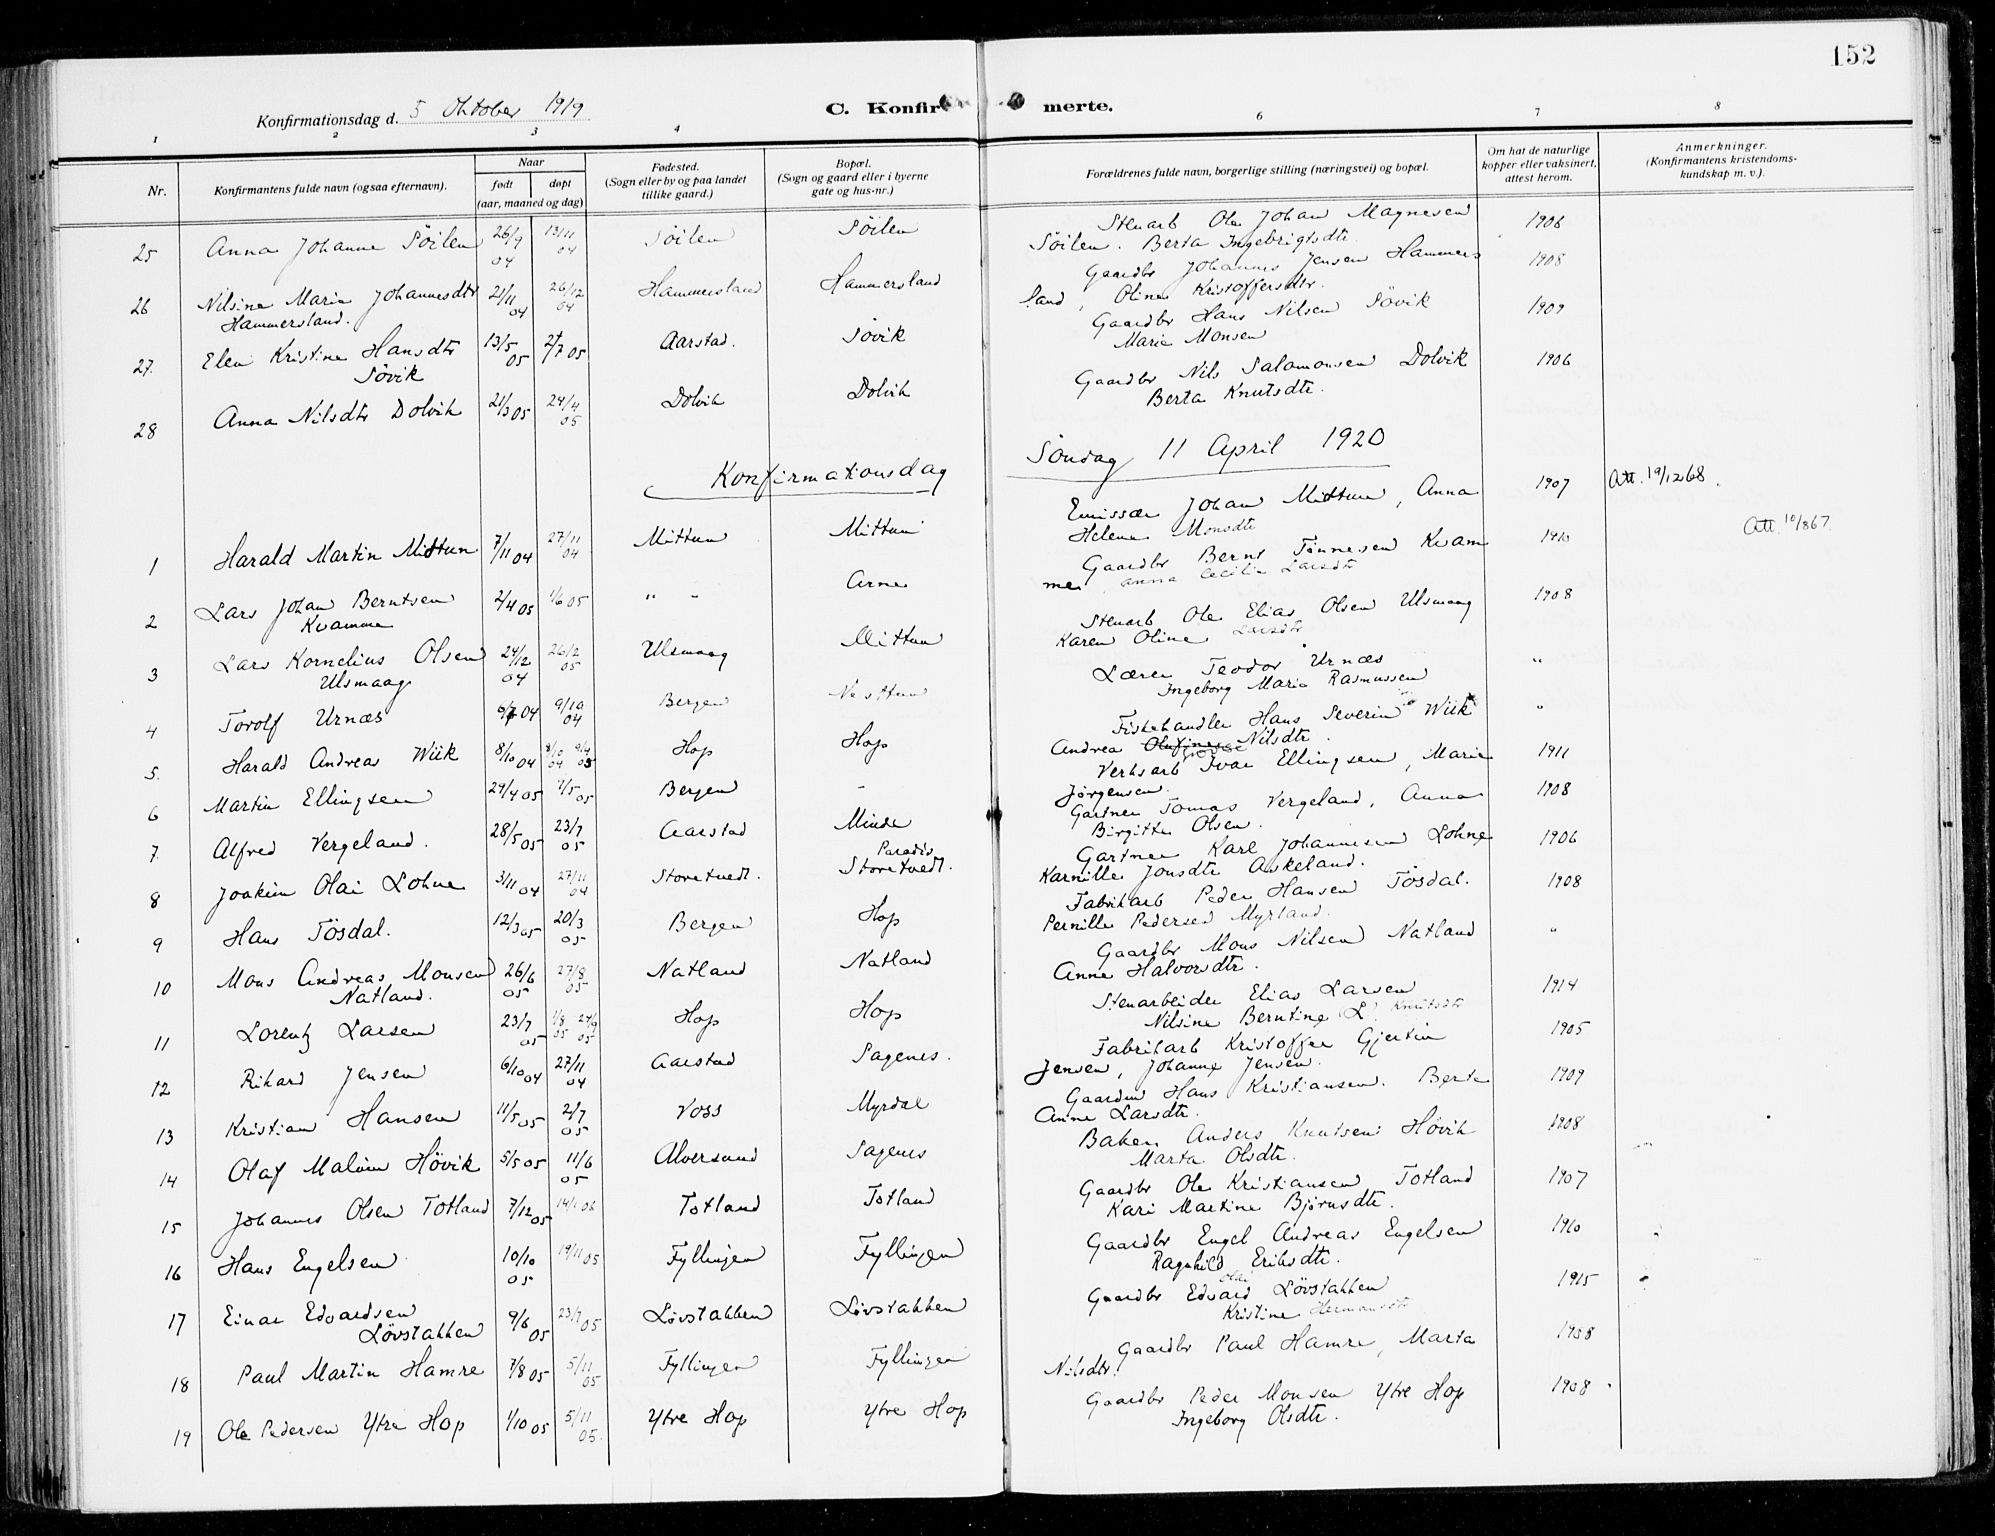 152
Konfirmationsdag d. 5 Oktober 1919
C. Konfirmerte.
1 2 3 4 6 7 8
Nr.
Konfirmantens fulde navn (ogsaa efternavn).
Naar
født
døpt
(aar, maaned og dag)
Fødested.
(Sogn eller by og paa landet
tillike gaard.)
Bopæl.
(Sogn og gaard eller i byerne
gate og hus-nr.)
Forældrenes fulde navn, borgerlige stilling (næringsvei) og bopæl.
Om hat de naturlige
kopper eller vaksinert,
attest herom.
Anmerkninger.
(Konfirmantens kristendoms-
kundskap m. v.).
25 Anna Johanne Söilen 26/9 04 13/11 04 Söilen Söilen Stenarb Ole Johan Magnesen 1906
Söilen. Berta Ingebrigtsdtr
26 Nilsine Marie Johannesdtr 21/11 04 26/12 04 Hammersland Hammersland Gaardbr Johannes Jensen Hammers 1908
Hammersland. land, Oline Kristoffersdtr.
27. Elen Kristine Hansdtr 13/5 05 2/7 05 Aarstad. Sövik Gaardbr Hans Nilsen Sövik 1909
Sövik Marie Monsen
28 Anna Nilsdtr Dolvik 21/3 05 24/4 05 Dolvik Dolvik Gaardbr Nils Salomonsen Dolvik 1906
Berta Knutsdtr.
Konfirmationsdag Söndag 11 April 1920
1 Harald Martin Midttun 7/11 04 27/11 04 Mittun Mittun Emissær Johan Midttun, Anna 1907 Att. 19/12 68.
Helene Monsdtr
Att. 10/8 67.
2 Lars Johan Berntsen 2/4 05 1/6 05 " - Arne Gaardbr Bernt Tönnesen Kvam 1910
Kvamme me, Anna Cecilie Larsdtr
3 Lars Kornelius Olsen 24/12 04 26/2 05 Ulsmaag Mittun Stenarb Ole Elias Olsen Ulsmaag 1908
Ulsmaag Karen Oline Larsdtr
4 Torolf Urnæs 04 9/10 04 Bergen Nesttun Lærer Teodor Urnæs "
Ingeborg Marie Rasmussen
5. Harald Andreas Wiik 8/10 04 8/10 04 9/4 05 Hop Hop Fiskehandler Hans Severin Wiik "
Andrea Nilsdtr.
6 Martin Ellingsen 29/4 05 7/5 05 Bergen - Verksarb Ivar Ellingsen, Marie 1911
Jörgensen.
7. Alfred Vergeland. 28/5 05 23/7 05 Aarstad Minde Gartner Tomas Vergeland, Anna 1908
Birgitte Olsen.
8 Joakim Olai Lohne 3/11 04 27/11 04 Storetvedt. Paradis Storetvedt. Gartner Karl Johannesen Lohne 1906
Karnille Jonsdtr Askeland.
9 Hans Tösdal. 12/3 05 20/3 05 Bergen Hop Fabrikarb Peder Hansen Tösdal. 1908
Pernille Pedersen Myrland.
10 Mons Andreas Monsen 26/6 05 27/8 05 Natland Natland Gaardbr Mons Nilsen Natland "
Natland. Anne Halvorsdtr.
11 Lorentz Larsen 23/7 05 1/8 05 24/9 05 Hop Hop Stenarbeider Elias Larsen 1914
Nilsine Berntine L. Knutsdtr
12 Rikard Jensen 6/10 04 27/11 04 Aarstad Sagenes. Fabrikarb Kristoffer Gjertin 1905
Jensen, Johanne Jensen.
13 Kristian Hansen 11/5 05 2/7 05 Voss Myrdal Gaardm Hans Kristiansen. Berta 1909
Anne Larsdtr.
14 Olaf Malvin Hövik 5/5 05 11/6 05 Alversund Sagenes Baker Anders Knutsen Hövik 1908
Marta Olsdtr.
15 Johannes Olsen Totland 7/12 05 14/1 06 Totland Totland Gaardbr Ole Kristiansen Totland 1907
Kari Martine Björnsdtr.
16 Hans Engelsen 10/10 05 19/11 05 Fyllingen Fyllingen Gaardbr Engel Andreas Engelsen 1910
Ragnhild Eriksdtr.
17 Einar Edvardsen 9/6 05 23/7 05 Lövstakken Lövstakken Gaardbr Edvard Olai Lövstakken 1915
Lövstakken Kristine Hermansdtr
18 Paul Martin Hamre 7/8 05 5/11 05 Fyllingen Fyllingen Gaardbr Paul Hamre, Marta 1908
Nilsdtr.
19 Ole Pedersen Ytre Hop 1/10 05 5/11 05. Ytre Hop Ytre Hop Gaardbr Peder Monsen Ytre Hop 1908
Ingeborg Olsdtr.